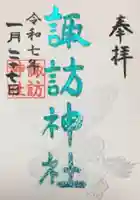 奉拝
諏訪神社
諏訪神社
令和七年
一月二十七日